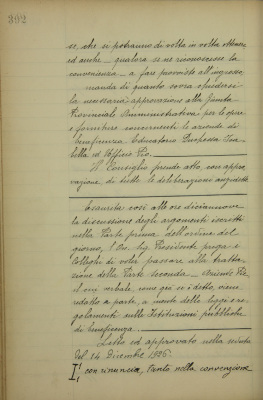 392
se, che si potranno di volta in volta ottenere,
ed anche - qualora se ne riconoscesse la
convenienza - a fare provviste all'ingrosso,
manda di quanto sovra chiedersi
la necessaria approvazione alla Giunta
Provinciale Amministrativa per le opere
e forniture concernenti le aziende di
beneficenza Educatorio Duchessa Isa
bella ed Ufficio Pio.
Il Consiglio prende atto, con appro
vazione, di tutte le deliberazioni suddette.
Esaurita così alle ore diciannove
la discussione degli argomenti iscritti
nella Parte prima dell'ordine del
giorno, l'On. Sig. Presidente prega i
Colleghi di voler passare alla tratta
zione della Parte Seconda
il cui verbale, come già si è detto, viene
redatto a parte, a mente della legge e re
golamenti sulle Istituzioni pubbliche
di beneficenza.
Letto ed approvato nella seduta
del 14 Dicembre 1926.
con rinuncia, tanto nella convenzione